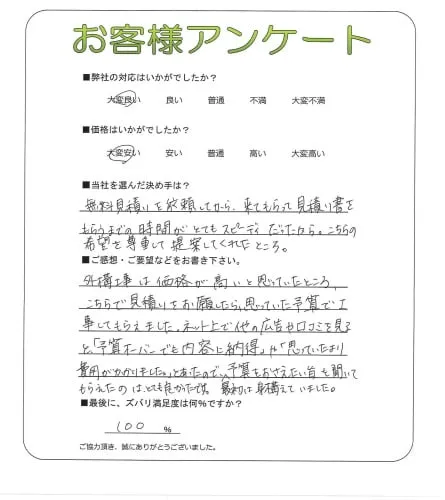 お客様アンケート
■弊社の対応はいかがでしたか?
大変良い 良い 普通 不満 大変不満
■価格はいかがでしたか?
大変安い 安い 普通 高い 大変高い
■当社を選んだ決め手は?
無料見積りを依頼してから、来てもらって見積り書を
もらうまでの時間がとてもスピーディだったから。こちらの
希望を尊重して提案してくれたところ。
■ご感想・ご要望などをお書き下さい。
外構工事は価格が高いと思っていたところ、
こちらで見積りをお願したら、思っていた予算で工
事してもらえました。ネット上で他の広告や口コミを見る
と、「予算オーバーでも内容に納得」や「思っていたより
費用がかかりました。」とあったので、予算をおさえたい旨を聞いて
もらえたのはとても良かったです。最初は身構えていました。
■最後に、ズバリ満足度は何%ですか?
100 %
ご協力頂き、誠にありがとうございました。